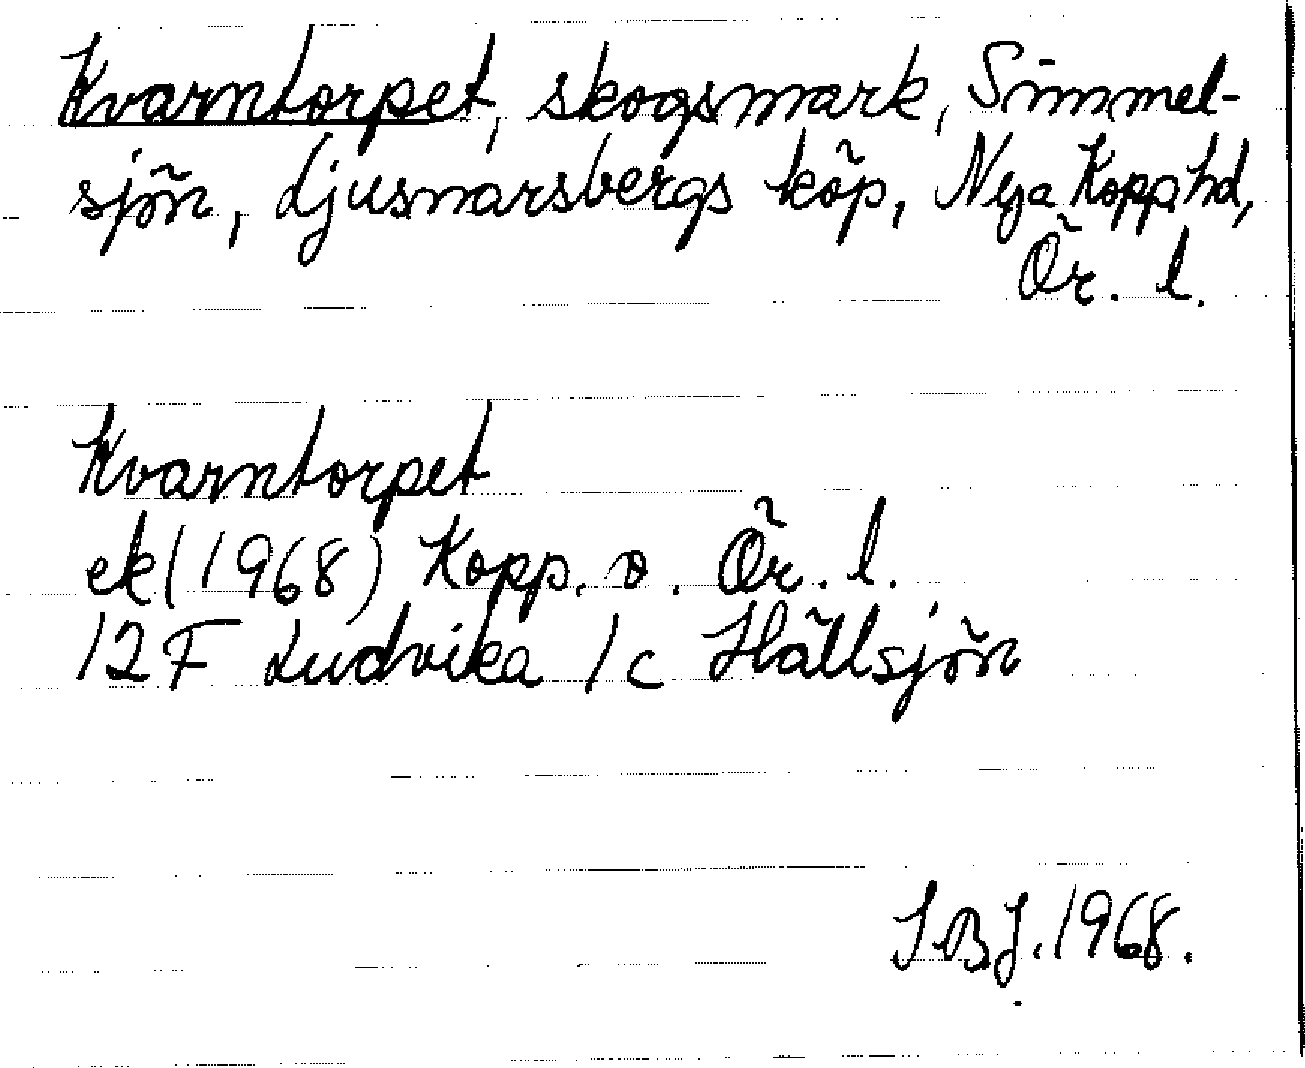 Kvarntorpet, skogsmark, Simmel-
sjön, Ljusnarsbergs köp, Nya Kopp.hd,
Ör. l.
Kvarntorpet
ek (1968) Kopp. o. Ör. l.
12 F Ludvika 1 c Hällsjön
SBJ. 1968.